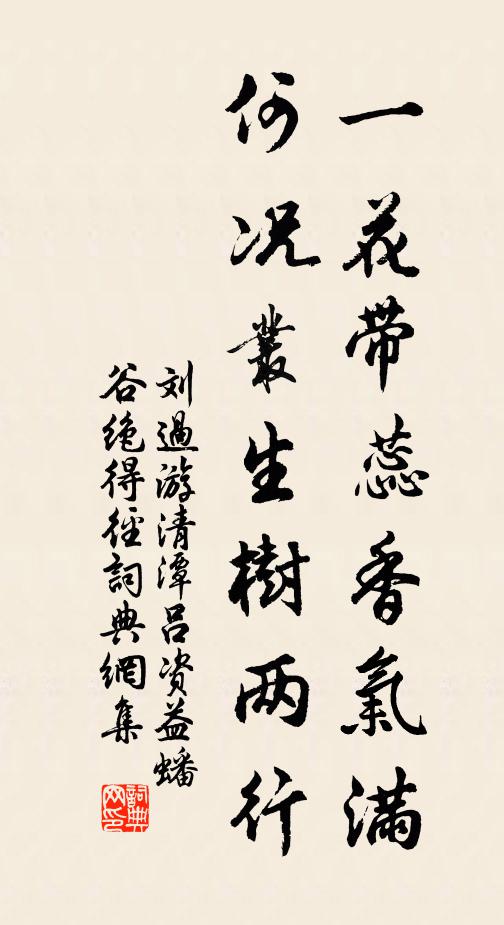 一花带蕊香氣满
何况叢生樹两行
刘過游清潭吕资益蟠
谷绝得徑詞典網集
詞典网印